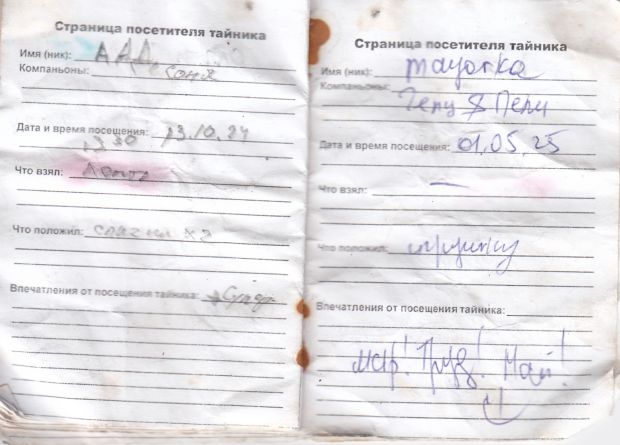 Страница посетителя тайника
Имя (ник): ААД,
Компаньоны: Соня
Дата и время посещения: 13.10.24
1330
Что взял:
Что положил:
Впечатления от посещения тайника:
Страница посетителя тайника
Имя (ник): mayorka
Компаньоны:
Дата и время посещения: 01.05.25
Что взял: —
Что положил: игрушку
Впечатления от посещения тайника:
мир! Труд! Май!